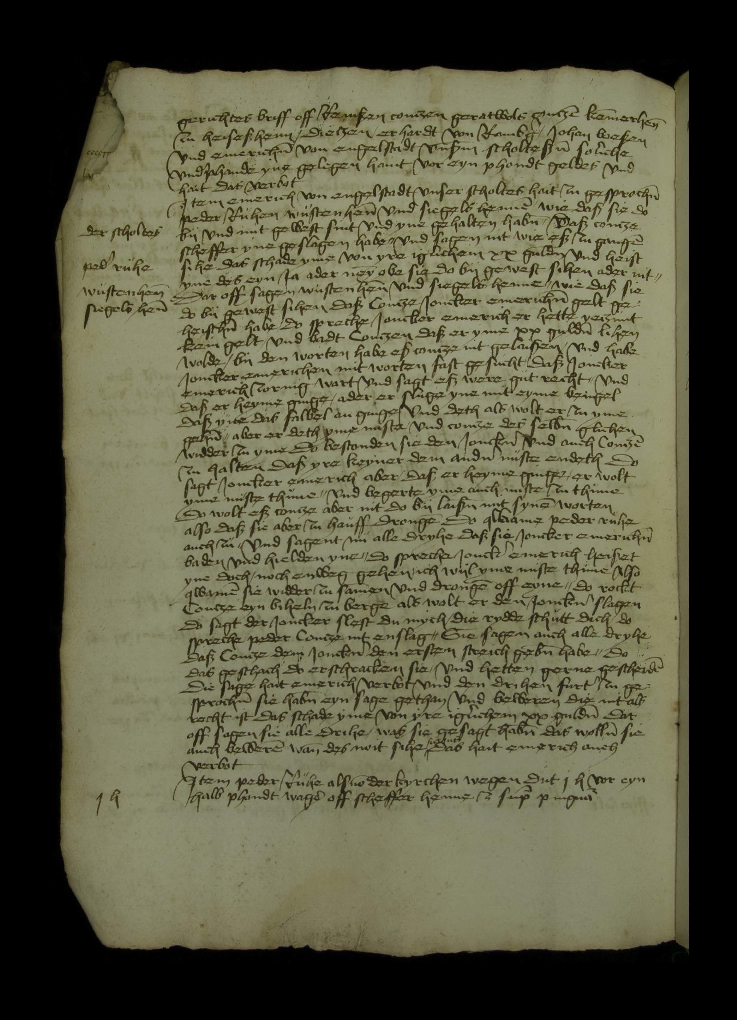 gerichtes briff off Remsen contzen geratwols
zu heseßheim / Dietzen erhardt von Ramb̄g / Johan boeßen
und emerichn̄ von engelstadt unßm̄ scholteßn̄ soliche
und yne gelegen hant vor eyn phondt geldes und
hait das verbot
Item emerich von engelstadt unser scholtes hait zu gesprochn̄
peder Ruhen wustenhen̄ und siegels hennen wie daß sie do
by und mit gewest sint und yne gehalten habn̄ / Daß contze
scheffer yne geslagen habe und sagen nit wie eß zu gangen̄
sihe das schade yme von yre iglichem xx guldn̄ und heist
yne des eyn Ja ader ney obe sie do by gewest sihen ader nit
der scholtes
ped' ruhe
wustenhen̄
siegels hen̄
Dar off sagen wustenhen̄ und siegels henne / wie daß sie
do by gewest sihen daß Contze Joncker emerichn̄ gelt ge-
heyschn̄ habe do spreche Joncker emerich er hette yetzunt
kein gelt / und badt Contzen daß er yme xx guldn̄ lihen
wolde / by den worten habe eß contze nit gelaißen / und habe
Joncker emerichen mit worten fast gesucht daß Joncker
emerich zornig wart und sagt eß were gut recht / und
daß er heyme ginge / ader er sluge yne mit eyme bengel
daß yne das an ginge und deth als wolt er zu yme
aber er deth yme niste / und contze des selbn̄ glichen
widder zu yme Do bestonden sie den Jonckn̄ und auch Contzen
zu halten daß yre keyner dem andn̄ niste endeth Do
sagt Joncker emerich aber daß er heyme ginge / er wolt
yme niste thune / und begerte yme auch niste zu thune
Do wolt eß contze aber nit do by laißn̄ mit syne worten
also daß sie aber zu hauff dronge Do qwame peder ruhe
auch zu / und sagent nu alle dryhe daß sie Joncker emerichn̄
baden und hielden yne / do spreche Jonck' emerich heißet
yne doch / noch enweg gehen / ich wyl yme niste thune Also
qwamen̄ sie widder zu samen und drongen off eyne / do rockt
Contze eyn biheln̄ zu berge als wolt er den Jonckn̄ slagen
do sagt der Joncker slest du mych die rydde schutt dich / do
spreche peder Contze nit enslag / Sie sagen auch alle dryhe
daß Contze dem Jonckn̄ den ersten streich gebn̄ habe / Do
das geschach do erschracken sie / und hetten gerne gescheidn̄
Die sage hait emerich verbot und den drihen furt zu ge-
sprochn̄ sie habn̄ eyn sage gethan und beweren die nit als
recht ist das schade yme von yre iglichem xx guldn̄ Dar
off sagen sie alle drihe / was sie gesagt habn̄ das wolln̄ sie
auch bewerē wan des noit sihe / das hait emerich auch
verbot
Item peder Ruhe als von der kyrchen wegen dut j h vor eyn
halb phondt wachs off scheffer henne z sup̄ p
j h